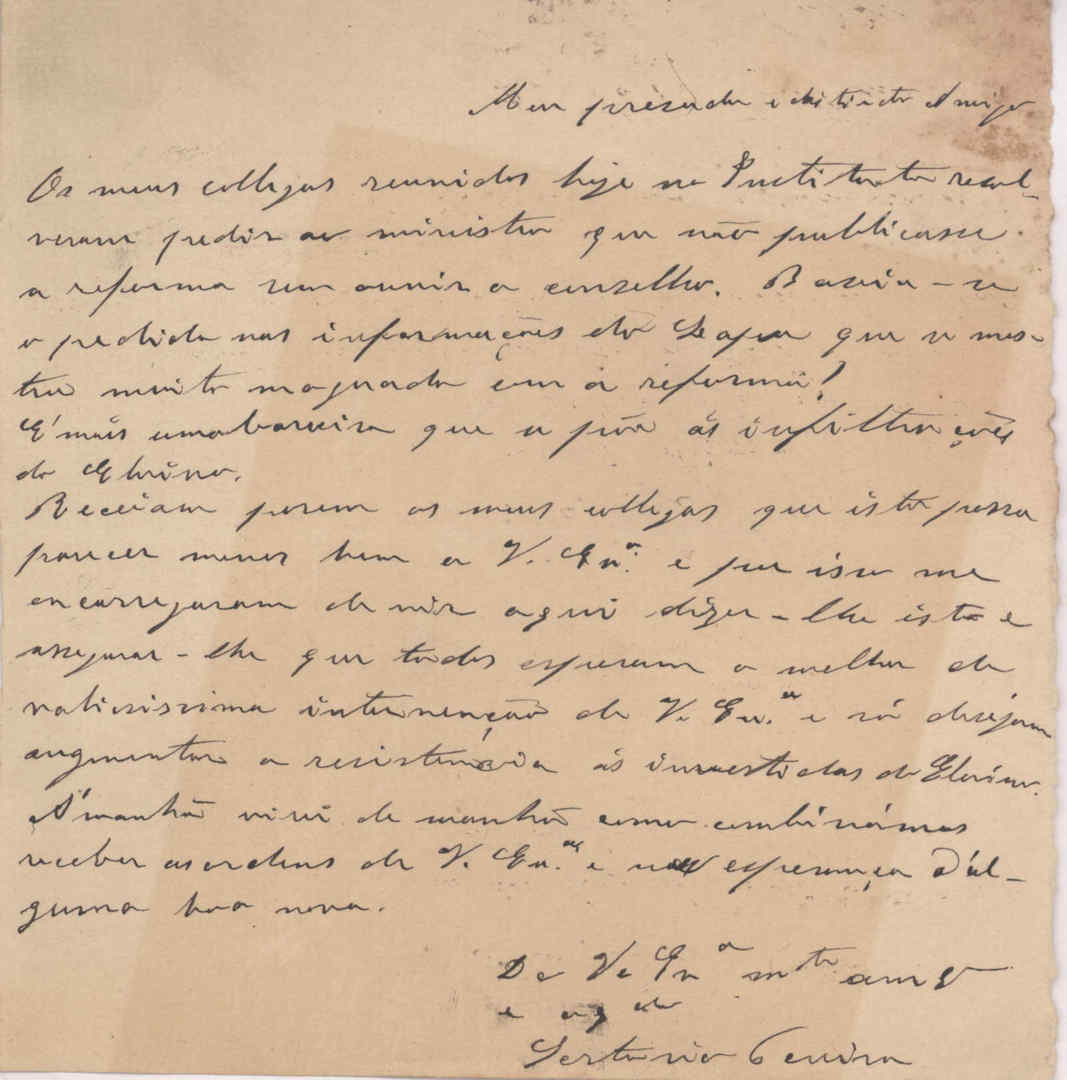 Meu presado e distincto Amigo
Os meus collegas reunidos hoje no Instituto resol-
veram pedir ao ministro que não publicasse
a reforma sem ouvir o conselho. Baseia-se
o pedido nas informações do Lapa que se mos-
tra muito magoado com a reforma!
É mais uma barreira que se põe ás infiltrações
do Elvino.
Receiam porem os meus collegas que isto possa
parecer menos bem a V. Exª. e por isso me
encarregaram de vir aqui dizer-lhe isto e
assegurar-lhe que todos esperam o melhor da
valiosissima intervenção de V. Exª. e só desejam
augmentar a resistencia ás investidas do Elvino.
Ámanhã virei de manhã como combinámos
receber as ordens de V. Exª. e na esperança d'al-
guma boa nova.
De V. Exª mto amº
e ogdo
Sertorio